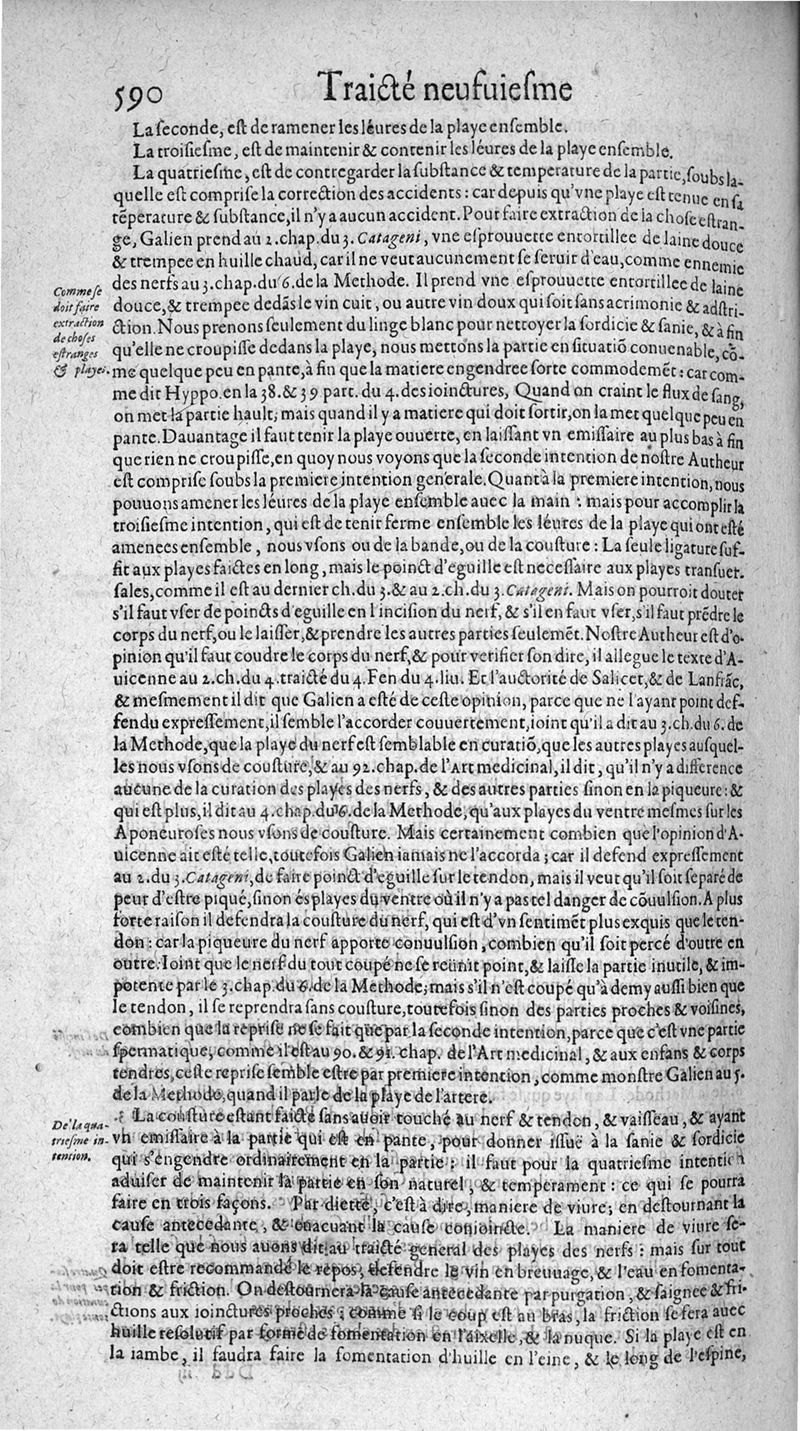 590 Traicté neufuieſme
La ſeconde, eſt de ramener les léures de la playe enſemble.
La troiſieſme, eſt de maintenir & contenir les léures de la playe enſemble.
La quatrieſme, eſt de contregarder la ſubſtance & temperature de la partie, ſoubs la-
quelle eſt compriſe la correction des accidents : car depuis qu'vne playe eſt tenue en ſa
tēperature & ſubſtance, il n'y a aucun accident. Pour faire extraction de la choſe eſtran-
ge, Galien prend au 2. chap. du 3. Catageni, vne eſprouuette entortillee de laine douce
& trempee en huille chaud, car il ne veut aucunement ſe ſeruir d'eau, comme ennemie
des nerfs au 3. chap. du 6. de la Methode. Il prend vne eſprouuette entortillee de laine
douce, & trempee dedās le vin cuit, ou autre vin doux qui ſoit ſans acrimonie & adſtri-
ction. Nous prenons ſeulement du linge blanc pour nettoyer la ſordicie & ſanie, & à fin
qu'elle ne croupiſſe dedans la playe, nous mettons la partie en ſituatiō conuenable, cō-
me quelque peu en pante, à fin que la matiere engendree ſorte commodemēt : car com-
me dit Hyppo. en la 38. & 39 part. du 4. des ioinctures, Quand on craint le flux de ſang,
on met la partie hault; mais quand il y a matiere qui doit ſortir, on la met quelque peu en
pante. Dauantage il faut tenir la playe ouuerte, en laiſſant vn emiſſaire au plus bas à fin
que rien ne croupiſſe, en quoy nous voyons que la ſeconde intention de noſtre Autheur
eſt compriſe ſoubs la premiere intention generale. Quant à la premiere intention, nous
pouuons amener les léures de la playe enſemble auec la main : mais pour accomplir la
troiſieſme intention, qui eſt de tenir ferme enſemble les léures de la playe qui ont eſté
amenees enſemble, nous vſons ou de la bande, ou de la couſture : La ſeule ligature ſuf-
fit aux playes faictes en long, mais le poinct d'eguille eſt neceſſaire aux playes tranſuer-
ſales, comme il eſt au dernier ch. du 3. & au 2. ch. du 3. Catageni. Mais on pourroit douter
s'il faut vſer de poincts d'eguille en l'inciſion du nerf, & s'il en faut vſer, s'il faut prēdre le
corps du nerf, ou le laiſſer, & prendre les autres parties ſeulemēt. Noſtre Autheur eſt d'o-
pinion qu'il faut coudre le corps du nerf, & pour verifier ſon dire, il allegue le texte d'A-
uicenne au 2. ch. du 4. traicté du 4. Fen du 4. liu. Et l'auctorité de Salicet, & de Lanfrāc,
& meſmement il dit que Galien a eſté de ceſte opinion, parce que ne l'ayant point def-
fendu expreſſement, il ſemble l'accorder couuertement, ioint qu'il a dit au 3. ch. du 6. de
la Methode, que la playe du nerf eſt ſemblable en curatiō, que les autres playes auſquel-
les nous vſons de couſture, & au 92. chap. de l'Art medicinal, il dit, qu'il n'y a difference
aucune de la curation des playes des nerfs, & des autres parties ſinon en la piqueure : &
qui eſt plus, il dit au 4. chap. du 6. de la Methode, qu'aux playes du ventre meſmes ſur les
Aponeuroſes nous vſons de couſture. Mais certainement combien que l'opinion d'A-
uicenne ait eſté telle, toutefois Galien iamais ne l'accorda; car il defend expreſſement
au 2. du 3. Catageni, de faire poinct d'eguille ſur le tendon, mais il veut qu'il ſoit ſeparé de
peur d'eſtre piqué, ſinon és playes du ventre où il n'y a pas tel danger de cōuulſion. A plus
forte raiſon il defendra la couſture du nerf, qui eſt d'vn ſentimēt plus exquis que le ten-
don : car la piqueure du nerf apporte conuulſion, combien qu'il ſoit percé d'outre en
outre. Ioint que le nerf du tout coupé ne ſe reünit point, & laiſſe la partie inutile, & im-
potente par le 3. chap. du 6. de la Methode; mais s'il n'eſt coupé qu'à demy auſſi bien que
le tendon, il ſe reprendra ſans couſture, toutefois ſinon des parties proches & voiſines,
combien que la repriſe ne ſe fait que par la ſeconde intention, parce que c'eſt vne partie
ſpermatique, comme il eſt au 90. & 91. chap. de l'Art medicinal, & aux enfans & corps
tendres, ceſte repriſe ſemble eſtre par premiere intention, comme monſtre Galien au 5.
de la Methode, quand il parle de la playe de l'artere.
La couſture eſtant faicte ſans auoir touché au nerf & tendon, & vaiſſeau, & ayant
vn emiſſaire à la partie qui eſt en pante, pour donner iſſuë à la ſanie & ſordicie
qui s'engendre ordinairement en la partie : il faut pour la quatrieſme intentiō
aduiſer de maintenir la partie en ſon naturel, & temperament : ce qui ſe pourra
faire en trois façons. Par diette, c'eſt à dire, maniere de viure; en deſtournant la
cauſe antecedante, & euacuant la cauſe conioincte. La maniere de viure ſe-
ra telle que nous auons dit au traicté general des playes des nerfs : mais ſur tout
doit eſtre recommandé le repos, defendre le vin en breuuage, & l'eau en fomenta-
tion & friction. On deſtournera la cauſe antecedante par purgation, & ſaignee & fri-
ctions aux ioinctures proches; comme ſi le coup eſt au bras, la friction ſe fera auec
huille reſolutif par forme de fomentation en l'aixelle, & la nuque. Si la playe eſt en
la iambe, il faudra faire la fomentation d'huille en l'eine, & le long de l'eſpine,
Comme ſe
doit faire
extraction
de choſes
eſtranges
& playes.
De la qua-
trieſme in-
tention.